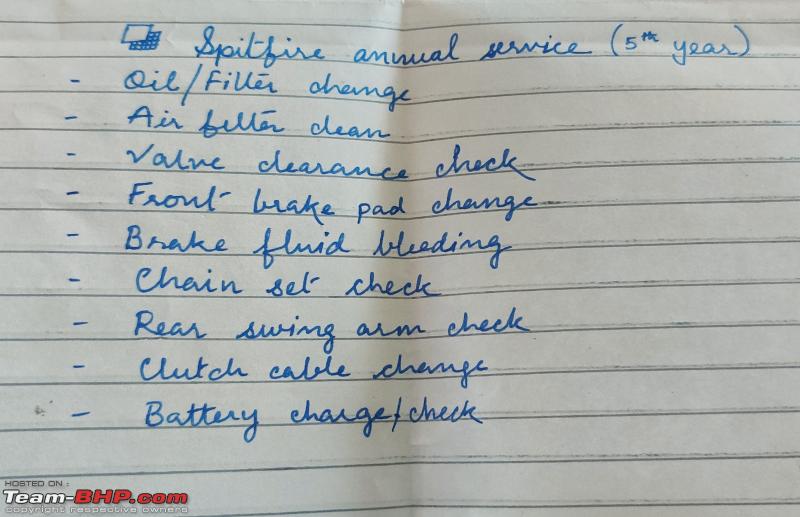 Spitfire annual service (5th year)
- Oil/Filter change
- Air filter clean
- Valve clearance check
- Front brake pad change
- Brake fluid bleeding
- Chain set check
- Rear swing arm check
- Clutch cable change
- Battery charge/check
HOSTED ON :
Team-BHP.com
copyright respective owners